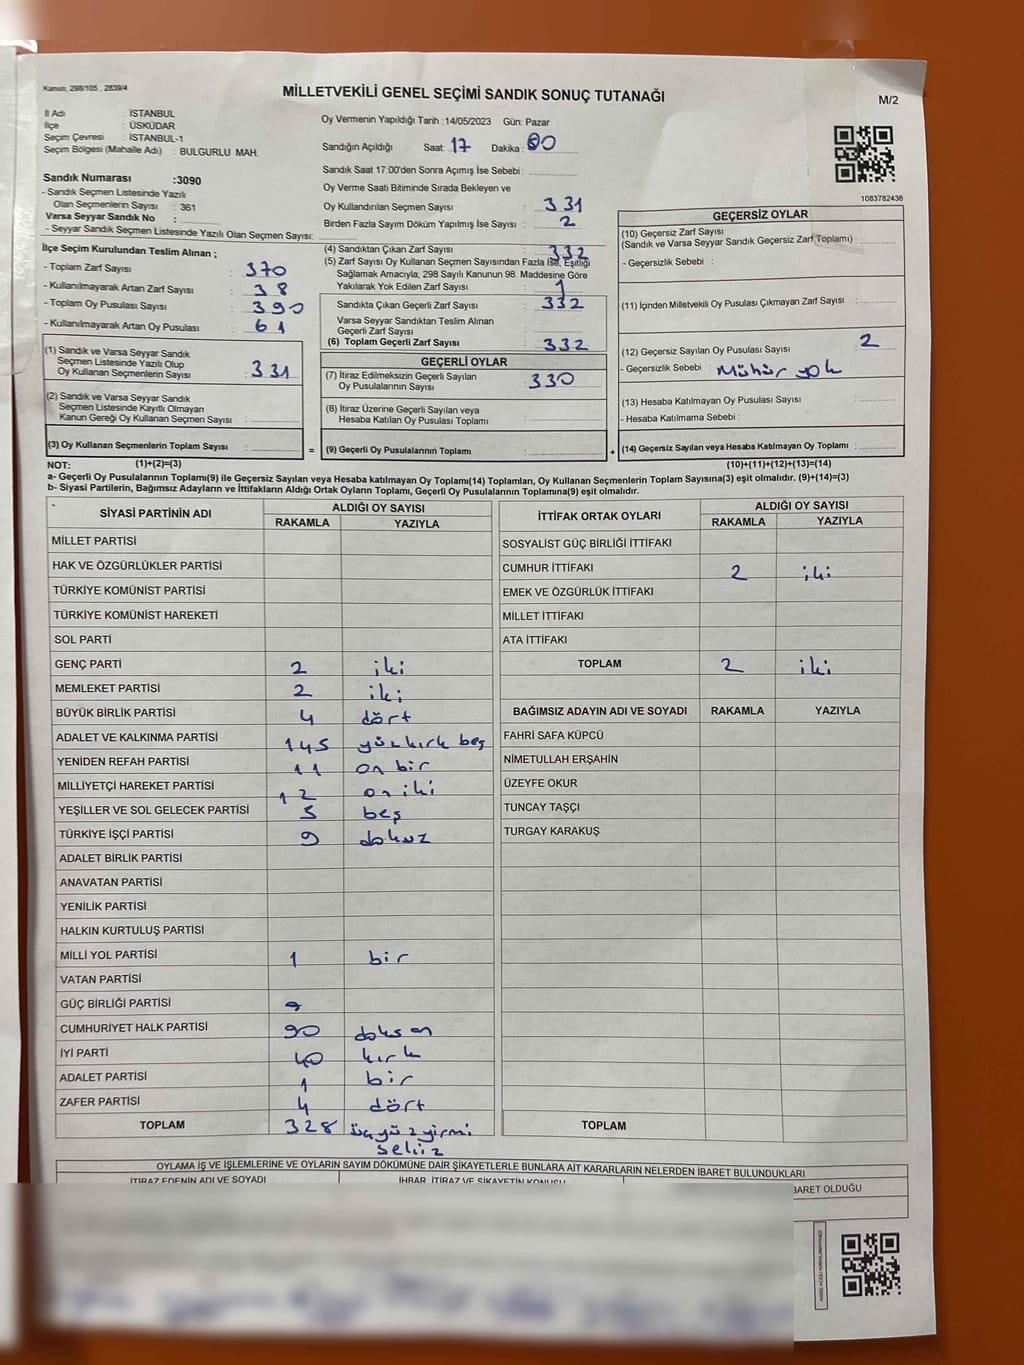 Kanun, 298/105 , 2839/4
MİLLETVEKİLİ GENEL SEÇİMİ SANDIK SONUÇ TUTANAĞI
M/2
İl Adı : İSTANBUL
İlçe : ÜSKÜDAR
Seçim Çevresi : İSTANBUL-1
Seçim Bölgesi (Mahalle Adı) : BULGURLU MAH.
Oy Vermenin Yapıldığı Tarih :14/05/2023 Gün: Pazar
Sandığın Açıldığı Saat: 17 Dakika: 00
Sandık Saat 17:00'den Sonra Açımış İse Sebebi:
Sandık Numarası :3090
- Sandık Seçmen Listesinde Yazılı
Olan Seçmenlerin Sayısı : 361
Varsa Seyyar Sandık No :
- Seyyar Sandık Seçmen Listesinde Yazılı Olan Seçmen Sayısı:
Oy Verme Saati Bitiminde Sırada Bekleyen ve
Oy Kullandırılan Seçmen Sayısı : 331
Birden Fazla Sayım Döküm Yapılmış İse Sayısı : 2
1083782436
İlçe Seçim Kurulundan Teslim Alınan ;
- Toplam Zarf Sayısı : 370
- Kullanılmayarak Artan Zarf Sayısı : 38
- Toplam Oy Pusulası Sayısı : 390
- Kullanılmayarak Artan Oy Pusulası : 61
(1) Sandık ve Varsa Seyyar Sandık
Seçmen Listesinde Yazılı Olup
Oy Kullanan Seçmenlerin Sayısı : 331
(2) Sandık ve Varsa Seyyar Sandık
Seçmen Listesinde Kayıtlı Olmayan
Kanun Gereği Oy Kullanan Seçmen Sayısı :
(3) Oy Kullanan Seçmenlerin Toplam Sayısı :
(1)+(2)=(3)
(4) Sandıktan Çıkan Zarf Sayısı : 332
(5) Zarf Sayısı Oy Kullanan Seçmen Sayısından Fazla İse, Eşitliği
Sağlamak Amacıyla, 298 Sayılı Kanunun 98. Maddesine Göre
Yakılarak Yok Edilen Zarf Sayısı : 1
Sandıkta Çıkan Geçerli Zarf Sayısı : 332
Varsa Seyyar Sandıktan Teslim Alınan
Geçerli Zarf Sayısı :
(6) Toplam Geçerli Zarf Sayısı : 332
GEÇERLİ OYLAR
(7) İtiraz Edilmeksizin Geçerli Sayılan
Oy Pusulalarının Sayısı : 330
(8) İtiraz Üzerine Geçerli Sayılan veya
Hesaba Katılan Oy Pusulası Toplamı :
= (9) Geçerli Oy Pusulalarının Toplamı :
GEÇERSİZ OYLAR
(10) Geçersiz Zarf Sayısı
(Sandık ve Varsa Seyyar Sandık Geçersiz Zarf Toplamı) :
- Geçersizlik Sebebi :
(11) İçinden Milletvekili Oy Pusulası Çıkmayan Zarf Sayısı :
(12) Geçersiz Sayılan Oy Pusulası Sayısı : 2
- Geçersizlik Sebebi : Mühür yok
(13) Hesaba Katılmayan Oy Pusulası Sayısı :
- Hesaba Katılmama Sebebi :
+ (14) Geçersiz Sayılan veya Hesaba Katılmayan Oy Toplamı :
(10)+(11)+(12)+(13)=(14)
NOT:
a- Geçerli Oy Pusulalarının Toplamı(9) ile Geçersiz Sayılan veya Hesaba katılmayan Oy Toplamı(14) Toplamları, Oy Kullanan Seçmenlerin Toplam Sayısına(3) eşit olmalıdır. (9)+(14)=(3)
b- Siyasi Partilerin, Bağımsız Adayların ve İttifakların Aldığı Ortak Oyların Toplamı, Geçerli Oy Pusulalarının Toplamına(9) eşit olmalıdır.
SİYASİ PARTİNİN ADI ALDIĞI OY SAYISI
RAKAMLA YAZIYLA
MİLLET PARTİSİ
HAK VE ÖZGÜRLÜKLER PARTİSİ
TÜRKİYE KOMÜNİST PARTİSİ
TÜRKİYE KOMÜNİST HAREKETİ
SOL PARTİ
GENÇ PARTİ 2 iki
MEMLEKET PARTİSİ 2 iki
BÜYÜK BİRLİK PARTİSİ 4 dört
ADALET VE KALKINMA PARTİSİ 145 yüzkırk beş
YENİDEN REFAH PARTİSİ 11 on bir
MİLLİYETÇİ HAREKET PARTİSİ 12 on iki
YEŞİLLER VE SOL GELECEK PARTİSİ 5 beş
TÜRKİYE İŞÇİ PARTİSİ 9 dokuz
ADALET BİRLİK PARTİSİ
ANAVATAN PARTİSİ
YENİLİK PARTİSİ
HALKIN KURTULUŞ PARTİSİ
MİLLİ YOL PARTİSİ 1 bir
VATAN PARTİSİ
GÜÇ BİRLİĞİ PARTİSİ
CUMHURİYET HALK PARTİSİ 90 doksan
İYİ PARTİ 40 kırk
ADALET PARTİSİ 1 bir
ZAFER PARTİSİ 4 dört
TOPLAM 328 üçyüzyirmi
sekiz
İTTİFAK ORTAK OYLARI ALDIĞI OY SAYISI
RAKAMLA YAZIYLA
SOSYALİST GÜÇ BİRLİĞİ İTTİFAKI
CUMHUR İTTİFAKI 2 iki
EMEK VE ÖZGÜRLÜK İTTİFAKI
MİLLET İTTİFAKI
ATA İTTİFAKI
TOPLAM 2 iki
BAĞIMSIZ ADAYIN ADI VE SOYADI RAKAMLA YAZIYLA
FAHRİ SAFA KÜPCÜ
NİMETULLAH ERŞAHİN
ÜZEYFE OKUR
TUNCAY TAŞÇI
TURGAY KARAKUŞ
TOPLAM
OYLAMA İŞ VE İŞLEMLERİNE VE OYLARIN SAYIM DÖKÜMÜNE DAİR ŞİKAYETLERLE BUNLARA AİT KARARLARIN NELERDEN İBARET BULUNDUKLARI
İTİRAZ EDENİN ADI VE SOYADI İHBAR, İTİRAZ VE ŞİKAYETİN KONUSU BARET OLDUĞU